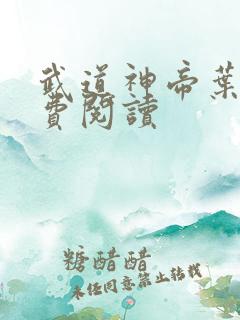 武道神帝葉
費閱讀
糖醋醋
未经同意禁止转载